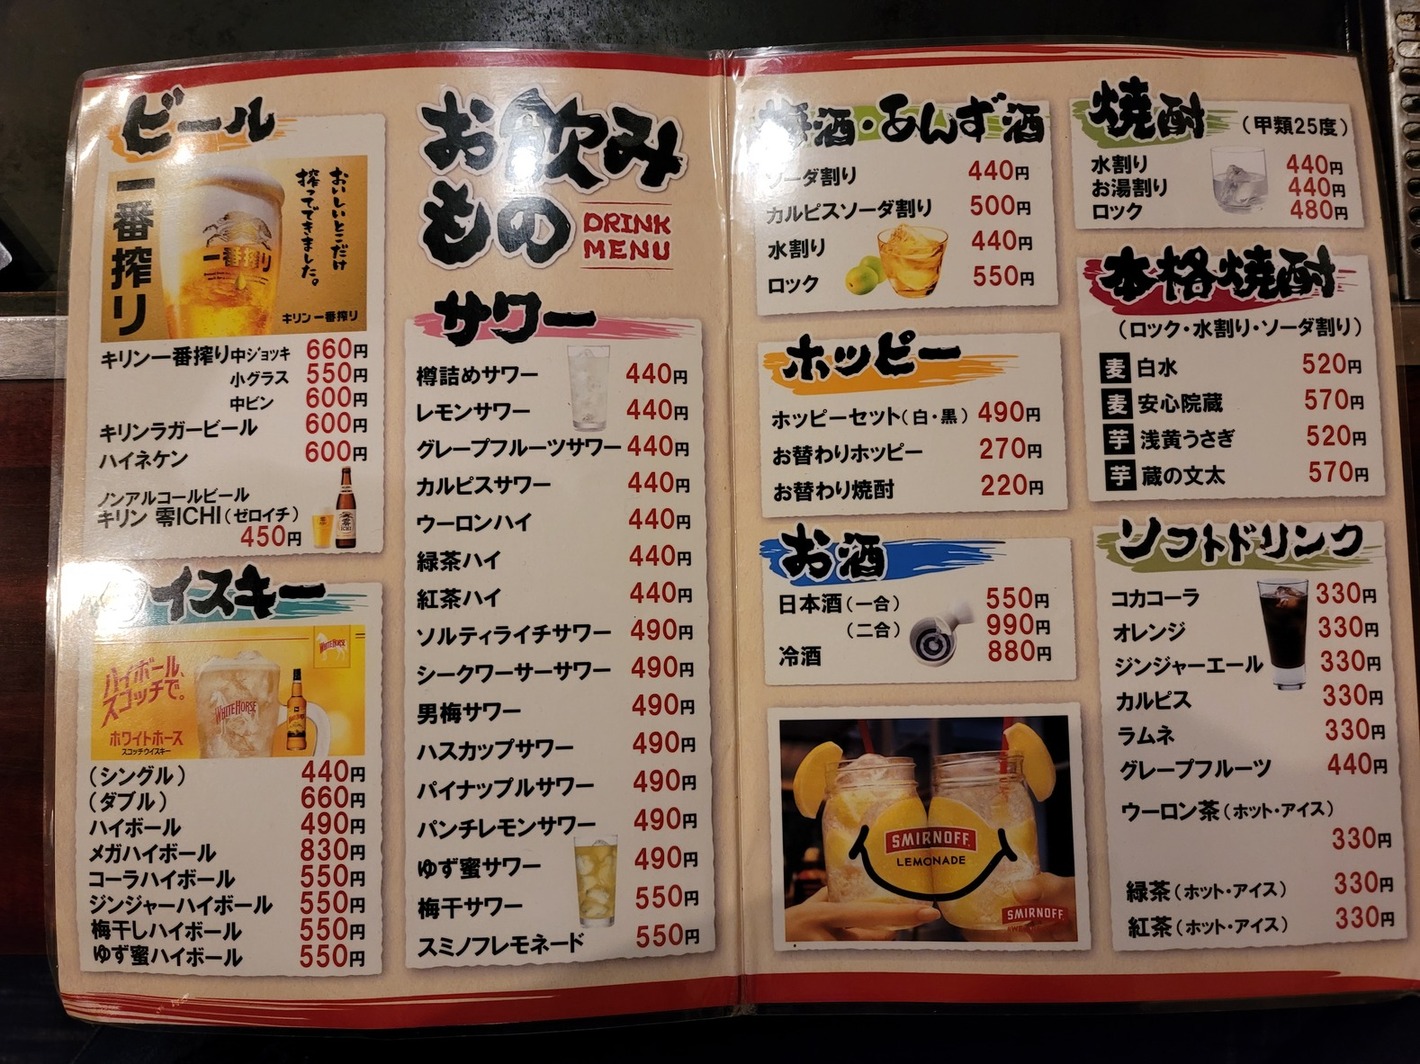 ビール
一番搾り
おいしいとこだけ
搾ってできました。
一番搾り
キリン一番搾り
キリン一番搾り中ジョッキ 660円
小グラス 550円
中ビン 600円
キリンラガービール 600円
ハイネケン 600円
ノンアルコールビール
キリン 零ICHI(ゼロイチ)
450円
零ICHI
イスキー
ハイボール、
スコッチで。
WHITE HORSE
WHITE HORSE
ホワイトホース
スコッチウイスキー
(シングル) 440円
(ダブル) 660円
ハイボール 490円
メガハイボール 830円
コーラハイボール 550円
ジンジャーハイボール 550円
梅干しハイボール 550円
ゆず蜜ハイボール 550円
お飲み
もの
DRINK
MENU
サワー
樽詰めサワー 440円
レモンサワー 440円
グレープフルーツサワー 440円
カルピスサワー 440円
ウーロンハイ 440円
緑茶ハイ 440円
紅茶ハイ 440円
ソルティライチサワー 490円
シークワーサーサワー 490円
男梅サワー 490円
ハスカップサワー 490円
パイナップルサワー 490円
パンチレモンサワー 490円
ゆず蜜サワー 490円
梅干サワー 550円
スミノフレモネード 550円
梅酒・あんず酒
ソーダ割り 440円
カルピスソーダ割り 500円
水割り 440円
ロック 550円
ホッピー
ホッピーセット(白・黒) 490円
お替わりホッピー 270円
お替わり焼酎 220円
お酒
日本酒(一合) 550円
(二合) 990円
冷酒 880円
SMIRNOFF
LEMONADE
SMIRNOFF
焼酎 (甲類25度)
水割り 440円
お湯割り 440円
ロック 480円
本格焼酎
(ロック・水割り・ソーダ割り)
麦 白水 520円
麦 安心院蔵 570円
芋 浅黄うさぎ 520円
芋 蔵の文太 570円
ソフトドリンク
コカコーラ 330円
オレンジ 330円
ジンジャーエール 330円
カルピス 330円
ラムネ 330円
グレープフルーツ 440円
ウーロン茶(ホット・アイス)
330円
緑茶(ホット・アイス) 330円
紅茶(ホット・アイス) 330円